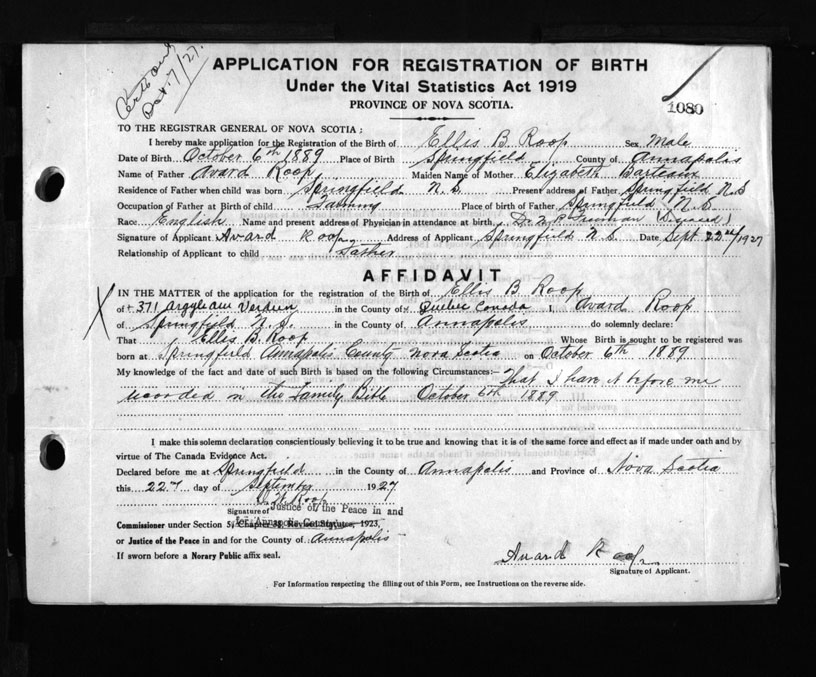 Oct 17/27.
APPLICATION FOR REGISTRATION OF BIRTH
Under the Vital Statistics Act 1919
PROVINCE OF NOVA SCOTIA.
1089
TO THE REGISTRAR GENERAL OF NOVA SCOTIA:
I hereby make application for the Registration of the Birth of Ellis B. Roop Sex Male
Date of Birth October 6th 1889 Place of Birth Springfield County of Annapolis
Name of Father Avard Roop Maiden Name of Mother Elizabeth Barteaux
Residence of Father when child was born Springfield N.S. Present address of Father Springfield N S
Occupation of Father at Birth of child Farming Place of birth of Father Springfield N. S.
Race English Name and present address of Physician in attendance at birth Dr. Freeman
Signature of Applicant Avard Roop Address of Applicant Springfield N.S. Date Sept 22nd/1927
Relationship of Applicant to child Father
AFFIDAVIT
IN THE MATTER of the application for the registration of the Birth of Ellis B. Roop
X of 371 Argyle ave Verdun in the County of Quebec Canada I, Avard Roop
of Springfield N.S. in the County of Annapolis do solemnly declare:
That Ellis B. Roop Whose Birth is sought to be registered was
born at Springfield Annapolis County Nova Scotia on October 6th 1889
My knowledge of the fact and date of such Birth is based on the following Circumstances:- That I have it before me
recorded in the Family Bible October 6th 1889
I make this solemn declaration conscientiously believing it to be true and knowing that it is of the same force and effect as if made under oath and by
virtue of The Canada Evidence Act.
Declared before me at Springfield in the County of Annapolis and Province of Nova Scotia
this 22 day of September 1927
Roop
Signature of Justice of the Peace in and
for Annapolis County
Commissioner under Section 5, Chapter 38, Revised Statutes, 1923.
or Justice of the Peace in and for the County of Annapolis
If sworn before a Norary Public affix seal.
Avard Roop
Signature of Applicant.
For Information respecting the filling out of this Form, see Instructions on the reverse side.